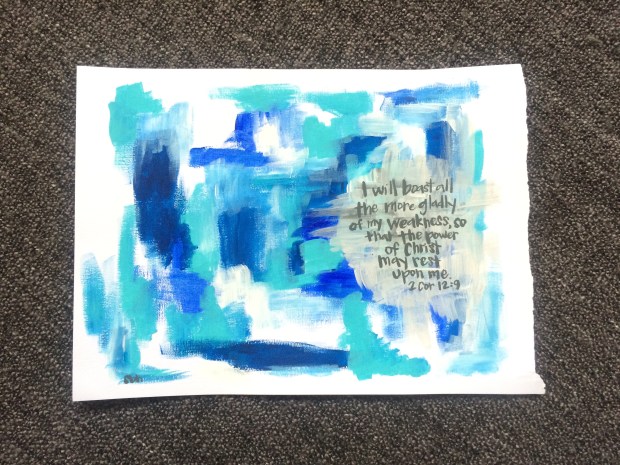 I will boast all
the more gladly
of my weakness, so
that the power
of Christ
may rest
upon me.
2 Cor 12:9